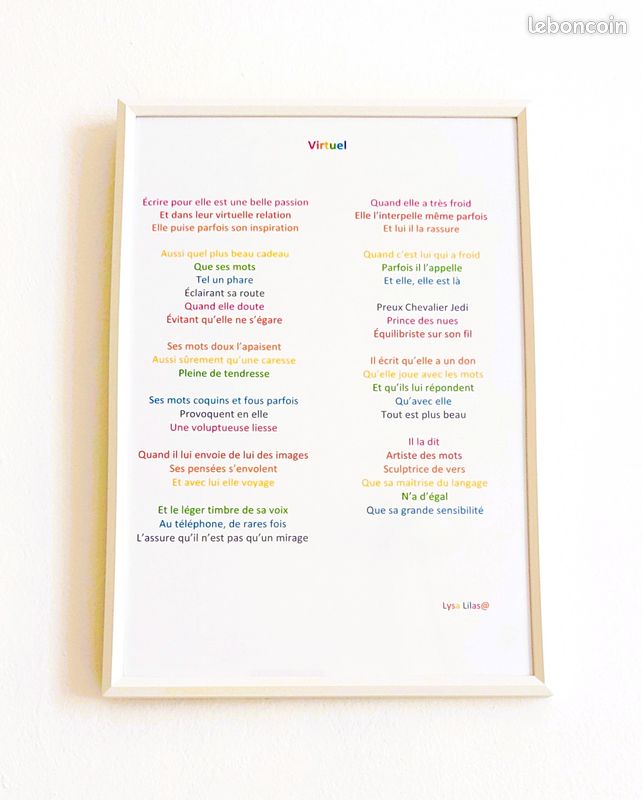 leboncoin
Virtuel
Écrire pour elle est une belle passion
Et dans leur virtuelle relation
Elle puise parfois son inspiration
Aussi quel plus beau cadeau
Que ses mots
Tel un phare
Éclairant sa route
Quand elle doute
Évitant qu'elle ne s'égare
Ses mots doux l'apaisent
Aussi sûrement qu'une caresse
Pleine de tendresse
Ses mots coquins et fous parfois
Provoquent en elle
Une voluptueuse liesse
Quand il lui envoie de lui des images
Ses pensées s'envolent
Et avec lui elle voyage
Et le léger timbre de sa voix
Au téléphone, de rares fois
L'assure qu'il n'est pas qu'un mirage
Quand elle a très froid
Elle l'interpelle même parfois
Et lui il la rassure
Quand c'est lui qui a froid
Parfois il l'appelle
Et elle, elle est là
Preux Chevalier Jedi
Prince des nues
Équilibriste sur son fil
Il écrit qu'elle a un don
Qu'elle joue avec les mots
Et qu'ils lui répondent
Qu'avec elle
Tout est plus beau
Il la dit
Artiste des mots
Sculptrice de vers
Que sa maîtrise du langage
N'a d'égal
Que sa grande sensibilité
Lysa Lilas@